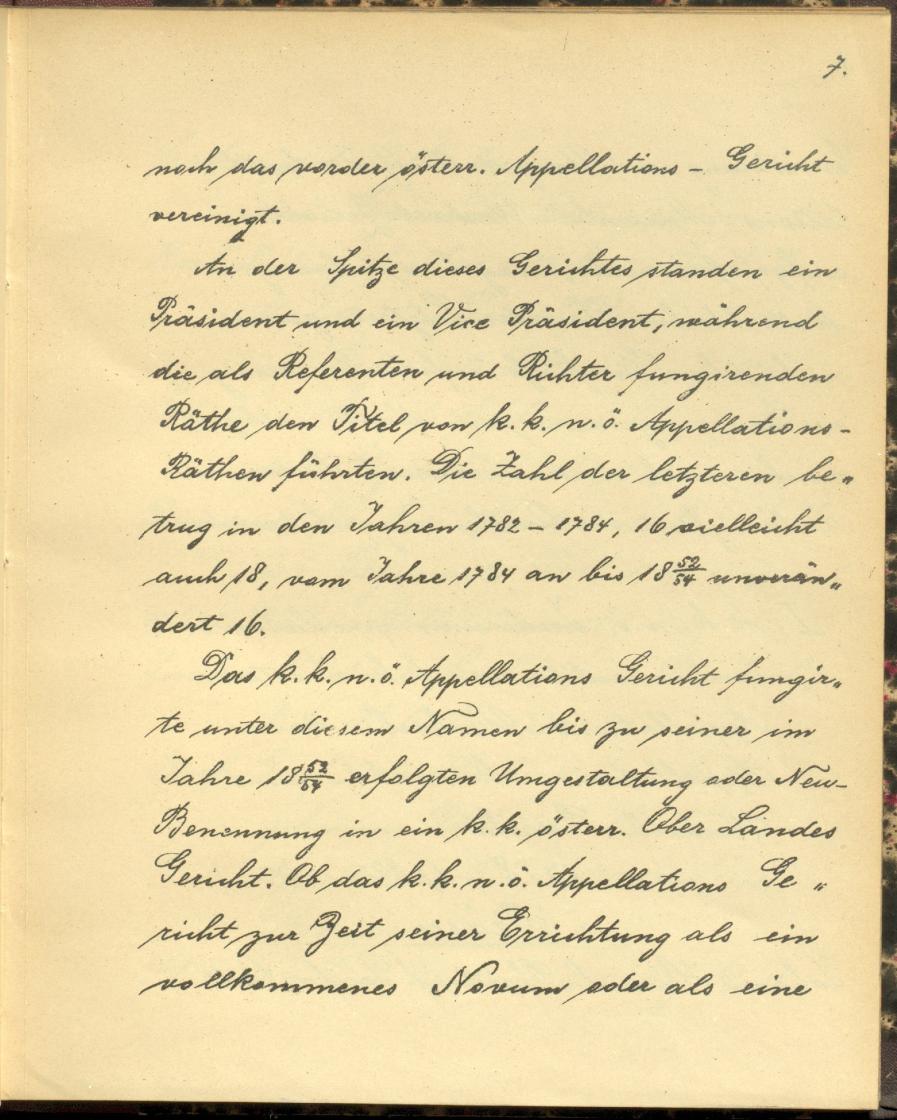 7.
noch das vorder österr. Appellations - Gericht
vereinigt.
An der Spitze dieses Gerichtes standen ein
Präsident und ein Vice Präsident, während
die als Referenten und Richter fungirenden
Räthe den Titel von k. k. n. ö. Appellations-
Räthen führten. Die Zahl der letzteren be„
trug in den Jahren 1782 - 1784, 16 vielleicht
auch 18, vom Jahre 1784 an bis 18 52/54 unverän„
dert 16.
Das k. k. n. ö. Appellations Gericht fungir„
te unter diesem Namen bis zu seiner im
Jahre 18 52/54 erfolgten Umgestaltung oder Neu-
Benennung in ein k. k. österr. Ober Landes
Gericht. Ob das k. k. n. ö. Appellations Ge„
richt zur Zeit seiner Errichtung als ein
vollkommenes Novum oder als eine